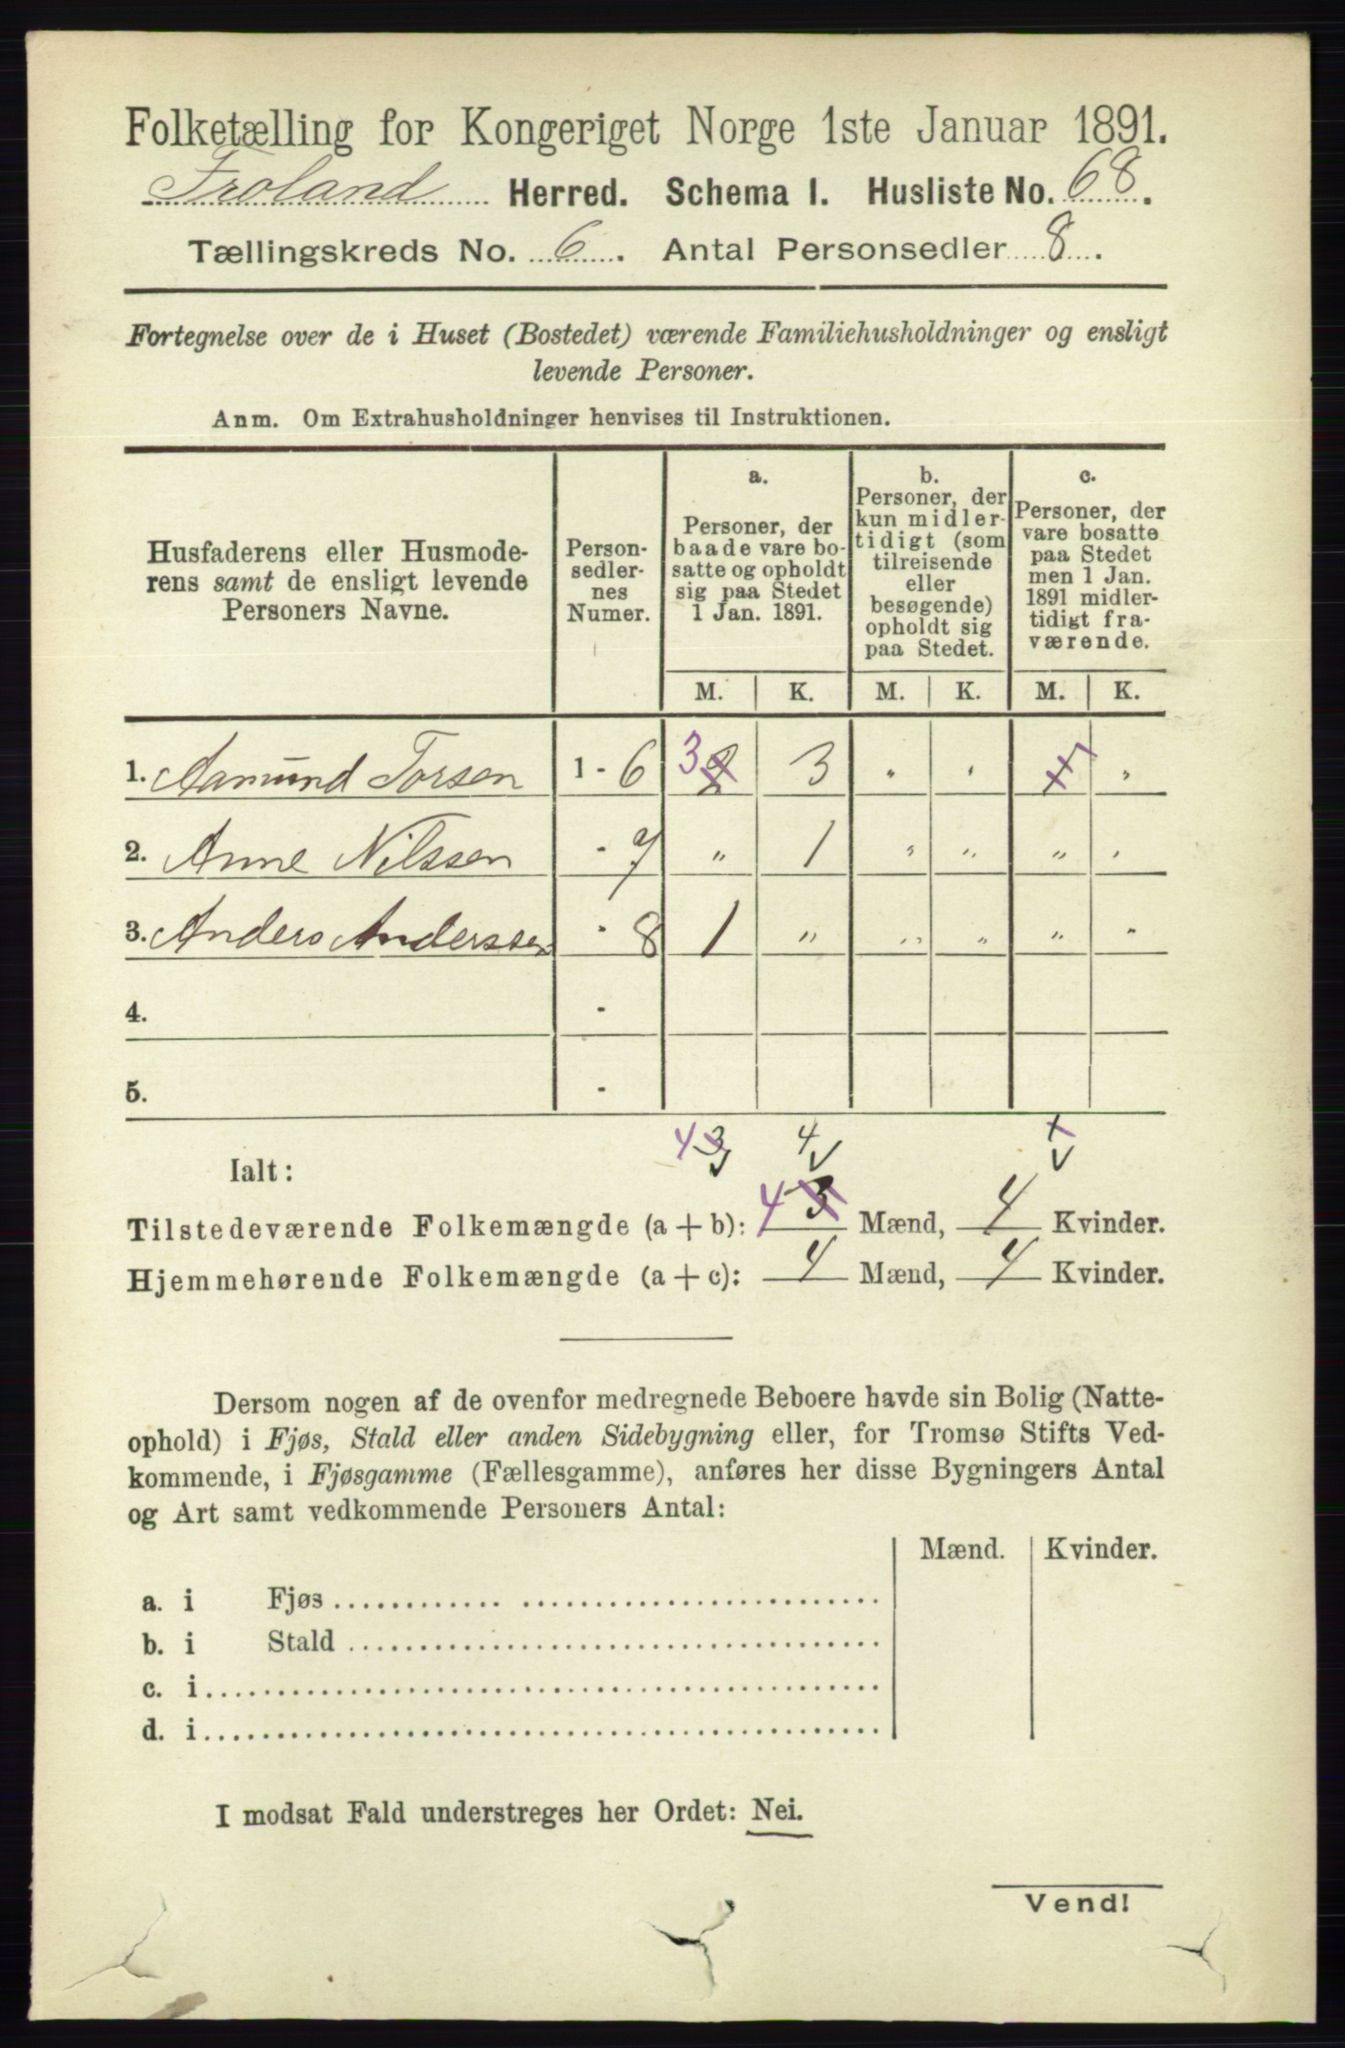 Folketælling for Kongeriget Norge 1ste Januar 1891.
Froland Herred. Schema I. Husliste No. 68.
Tællingskreds No. 6. Antal Personsedler 8.
Fortegnelse over de i Huset (Bostedet) værende Familiehusholdninger og ensligt
levende Personer.
Anm. Om Extrahusholdninger henvises til Instruktionen.
Husfaderens eller Husmode-
rens samt de ensligt levende
Personers Navne.
Person-
sedler-
nes
Numer.
a.
Personer, der
baade vare bo-
satte og opholdt
sig paa Stedet
1 Jan. 1891.
b.
Personer, der
kun midler-
tidigt (som
tilreisende
eller
besøgende)
opholdt sig
paa Stedet.
c.
Personer, der
vare bosatte
paa Stedet
men 1 Jan.
1891 midler-
tidigt fra-
værende.
M. K. M. K. M. K.
1. Aamund Torsen 1 - 6 3 2 3 " " 1 "
2. Anne Nilssen - 7 " 1 " " " "
3. Anders Anderssen - 8 1 " " " " "
4. -
5. -
4 3 4 1
Ialt:
Tilstedeværende Folkemængde (a + b): 4 3 Mænd, 4 Kvinder.
Hjemmehørende Folkemængde (a + c): 4 Mænd, 4 Kvinder.
Dersom nogen af de ovenfor medregnede Beboere havde sin Bolig (Natte-
ophold) i Fjøs, Stald eller anden Sidebygning eller, for Tromsø Stifts Ved-
kommende, i Fjøsgamme (Fællesgamme), anføres her disse Bygningers Antal
og Art samt vedkommende Personers Antal:
Mænd. Kvinder.
a. i Fjøs
b. i Stald
c. i
d. i
I modsat Fald understreges her Ordet: Nei.
Vend!